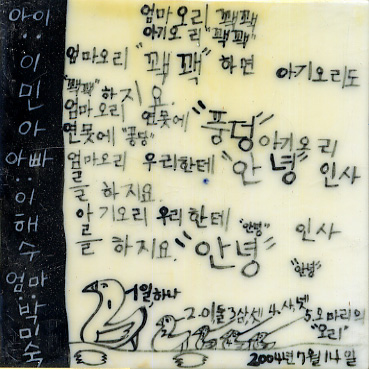 아이
:
이
민
아
아빠
:
이
해
수
엄마
:
박
민
숙
엄마오리 꽥꽥
아기오리 "꽥꽥"
엄마오리 "꽥꽥" 하면 아기오리도
"꽥꽥" 하지요.
엄마오리 연못에 "풍덩" 아기오리
연못에 "풍덩"
엄마오리 우리한테 "안녕" 인사
를 하지요.
아기오리 우리한테 "안녕" 인사
를 하지요. "안녕" "안녕"
1일하나
2.이둘 3삼셋 4.사넷 5.오마리의
"오리"
2004년 7월 14일